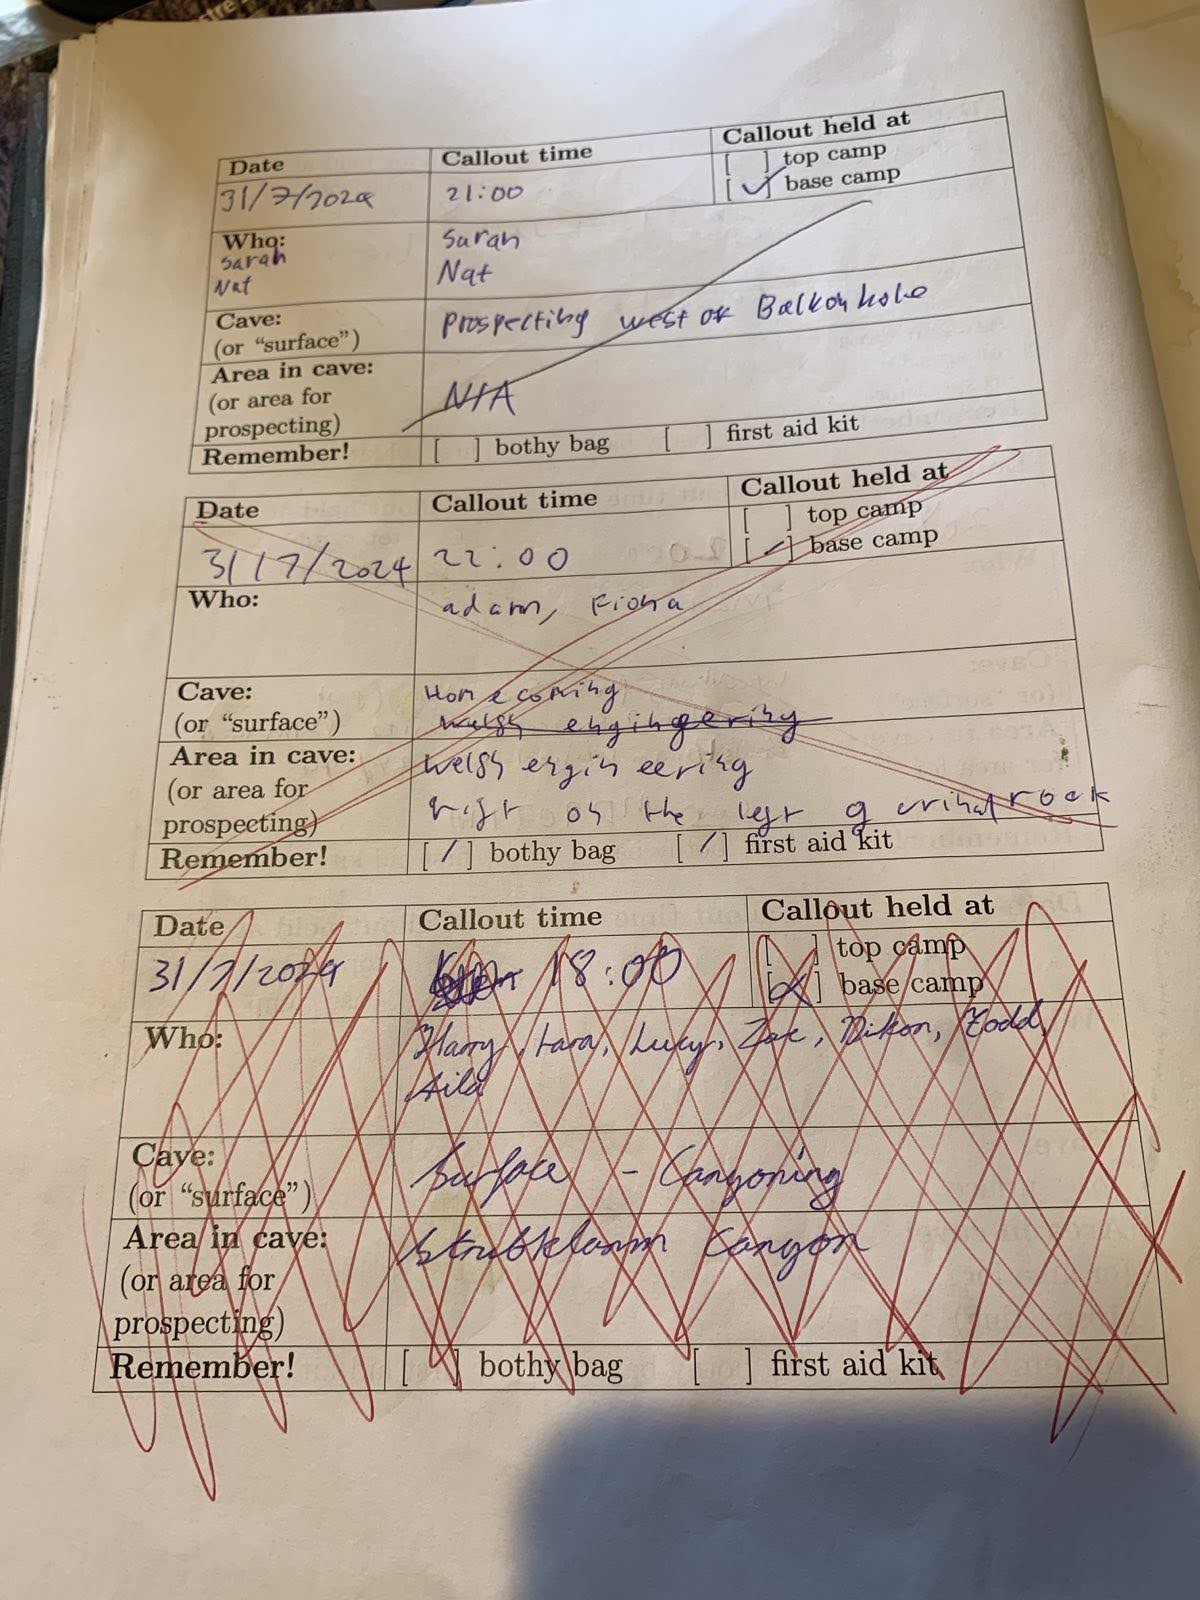 Date Callout time Callout held at
[ ] top camp
31/7/2024 21:00 [✓] base camp
Who: Sarah
Sarah
Nat Nat
Cave: Prospecting west of Balkonhole
(or “surface”)
Area in cave:
(or area for N/A
prospecting)
Remember! [ ] bothy bag [ ] first aid kit
Date Callout time Callout held at
[ ] top camp
31/7/2024 22:00 [/] base camp
Who: adam, Fiona
Cave: Homecoming
(or “surface”) welsh engingeering
Area in cave: welsh engineering
(or area for on the left
prospecting) rock
Remember! [/] bothy bag [/] first aid kit
Date Callout time Callout held at
[ ] top camp
31/7/2024 18:00 [x] base camp
Who: Harry, Lara, Lucy, Zac, Dikon, Todd,
Aila
Cave: Surface - Canyoning
(or “surface”)
Area in cave: Strubklamm Canyon
(or area for
prospecting)
Remember! [ ] bothy bag [ ] first aid kit